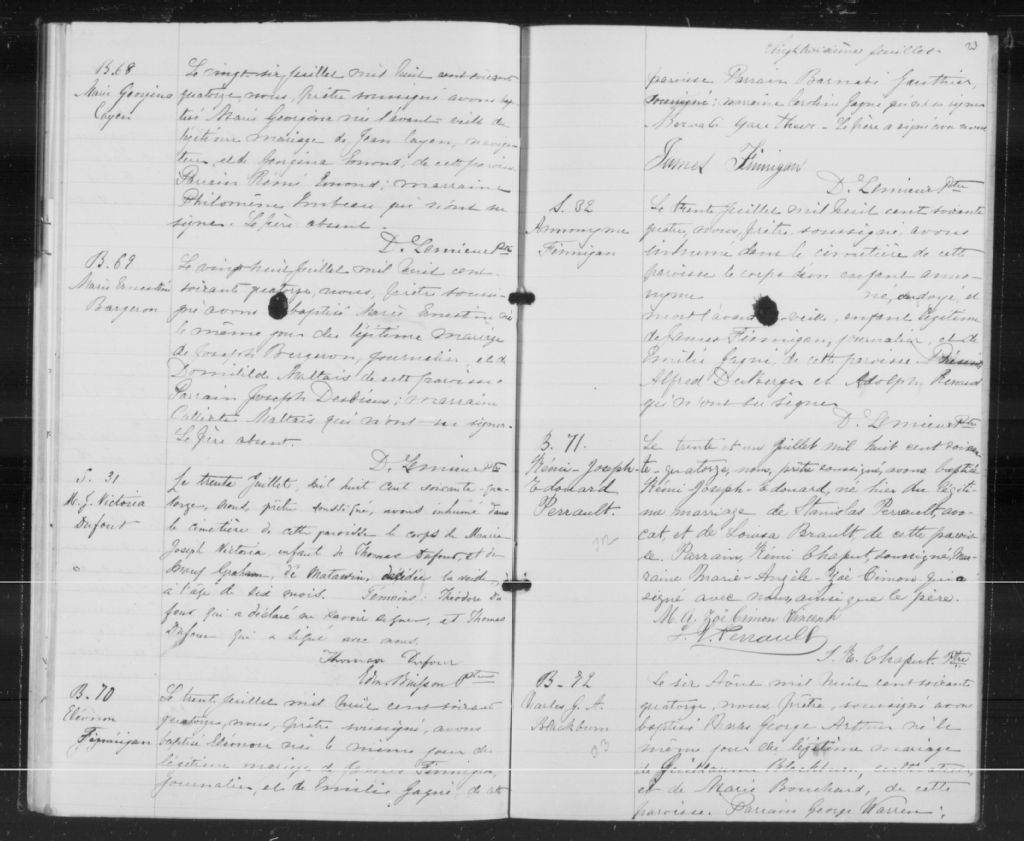 B. 68
Marie Georgina
Cayen
Le vingt six juillet mil huit cent soixante
quatorze nous, prêtre soussigné avons bap-
tisé Marie Georgina née l'avant-veille du
légitime mariage de Jean Cayen, naviga-
teur, et de Georgina Emond, de cette paroisse
Parrain Rémi Emond; marraine
Philomène Imbeau qui n'ont su
signer. Le père absent.
D. Lemieux Ptre
B. 69
Marie Ernestine
Bargeron
Le vingt huit juillet mil huit cent-
soixante quatorze, nous, prêtre soussi-
gné avons baptisé Marie Ernestine née
le même jour du légitime mariage
de Joseph Bergeron, journalier, et de
Domitilde Maltais de cette paroisse
Parrain Joseph Desbiens; marraine
Calixte Maltais qui n'ont su signer.
Le père absent.
D. Lemieux Ptre
S. 31
M. J. Victoria
Dufour
Le trente Juillet, mil huit cent soixante-qua-
torze, nous, prêtre soussigné, avons inhumé dans
le cimetière de cette paroisse le corps de Marie
Joseph Victoria, enfant de Thomas Dufour, et de
Graham, de décédée la veille,
à l'age de six mois. Témoins: Théodore Du
four qui a déclaré ne savoir signer, et Thomas
Dufour qui a signé avec nous.
Thomas Dufour
Ptre
B. 70
Eléonore
Finnigan
Le trente juillet mil huit cent soixante
quatorze, nous, prêtre soussigné, avons
baptisé Eléonore née le même jour du
légitime mariage de James Finnigan,
journalier, et de Emilie Gagné, de cette
Vingt troisième feuillet
23
paroisse Parrain Barnabé Gauthier,
soussigné; marraine Caroline Gagné qui n'a su signer
Barnabé Gauthier - Le père a signé avec nous
James Finnigan
D. Lemieux Ptre
S. 32
Annonyme
Finnigan
Le trente juillet mil huit cent soixante
quatorze, nous, prêtre soussigné, avons
inhumé dans le cimetière de cette
paroisse le corps d'un enfant anno-
nyme né, ondoyé, et
mort l'avant-veille, enfant légitime
de James Finnigan, journalier, et de
Emilie Gagné, de cette paroisse. Présents
Alfred et Adolphe Renaud
qui n'ont su signer
D. Lemieux Ptre
B. 71.
Rémi-Joseph-
Edouard
Perrault.
Le trente et un Juillet mil huit cent soixan-
te-quatorze, nous, prêtre soussigné, avons baptisé
Rémi Joseph-Edouard, né hier du légiti-
me marriage de Stanislas Perrault, avo-
cat, et de Louisa Brault, de cette parois-
se, Parrain, Rémi Chaput, soussigné, Mar-
raine Marie-Angèle-Zoé Cimon, qui a
signé avec nous, ainsi que le père.
M. A. Zoé Cimon Vincent
Perrault
J. E. Chaput. Ptre
B- 72
Charles G. A.
Blackburn
Le six Août mil huit cent soixante
quatorze, nous, prêtre, soussigné avons
baptisé Charles George Arthur né le
même jour du légitime mariage
de Guillaume Blackburn, cultivateur,
et de Marie Bouchard, de cette
paroisse. Parrain George Warren;